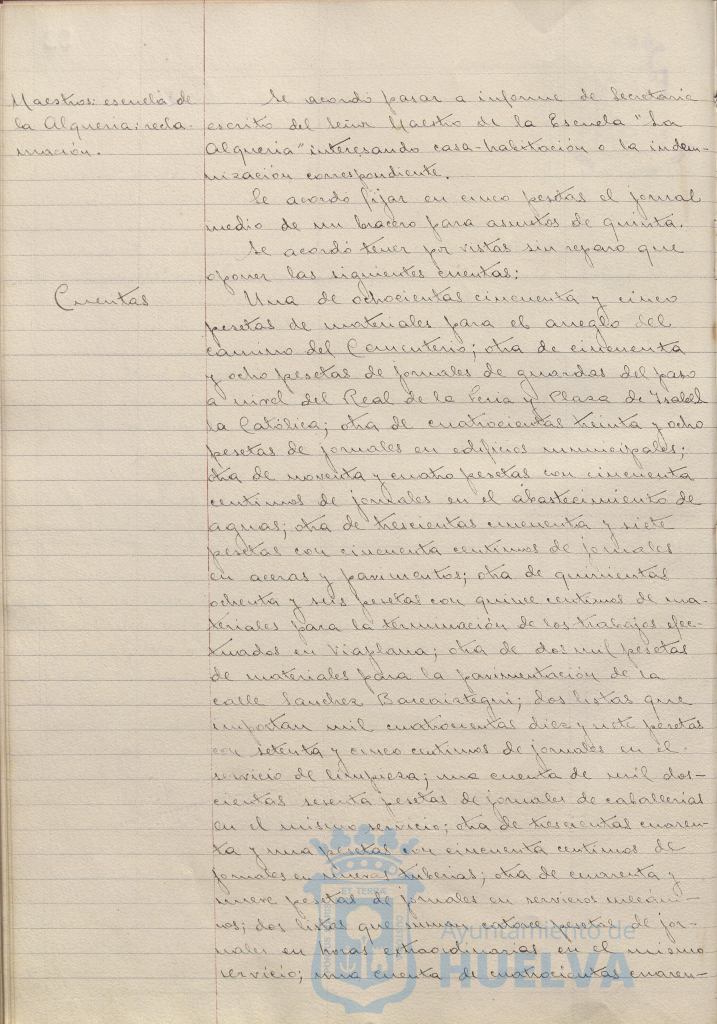 Maestros: escuela de
la Alqueria: recla-
mación.
Se acordó pasar a informe de Secretaria
escrito del Señor Maestro de la Escuela "La
Alqueria" interesando casa-habitación o la indem-
nización correspondiente.
Se acordó fijar en cinco pesetas el jornal
medio de un bracero para asuntos de quinta.
Se acordó tener por vistas sin reparo que
oponer las siguientes cuentas;
Cuentas
Una de ochocientas cincuenta y cinco
pesetas de materiales para el arreglo del
camino del Cementerio; otra de cincuenta
y ocho pesetas de jornales de guardas del paso
a nivel del Real de la Feria y Plaza de Isabel
la Católica; otra de cuatrocientas treinta y ocho
pesetas de jornales en edificios municipales;
otra de noventa y cuatro pesetas con cincuenta
centimos de jornales en el abastecimiento de
aguas; otra de trescientas cincuenta y siete
pesetas con cincuenta centimos de jornales
en aceras y pavimentos; otra de quinientas
ochenta y seis pesetas con quince centimos de ma-
teriales para la terminación de los trabajos efec-
tuados en Viaplana; otra de dos mil pesetas
de materiales para la pavimentación de la
calle Sanchez Barcaiztegui; dos listas que
importan mil cuatrocientas diez y siete pesetas
con setenta y cinco centimos de jornales en el
servicio de limpieza; una cuenta de mil dos-
cientas sesenta pesetas de jornales de caballerias
en el mismo servicio; otra de trescientas cuaren-
ta y una pesetas con cincuenta centimos de
jornales en nuevas tuberias; otra de cuarenta y
nueve pesetas de jornales en servicios mecáni-
cos; dos listas que suman catorce pesetas de jor-
nales en horas extraordinarias en el mismo
servicio; una cuenta de cuatrocientas cuaren-
Ayuntamiento de
HUELVA